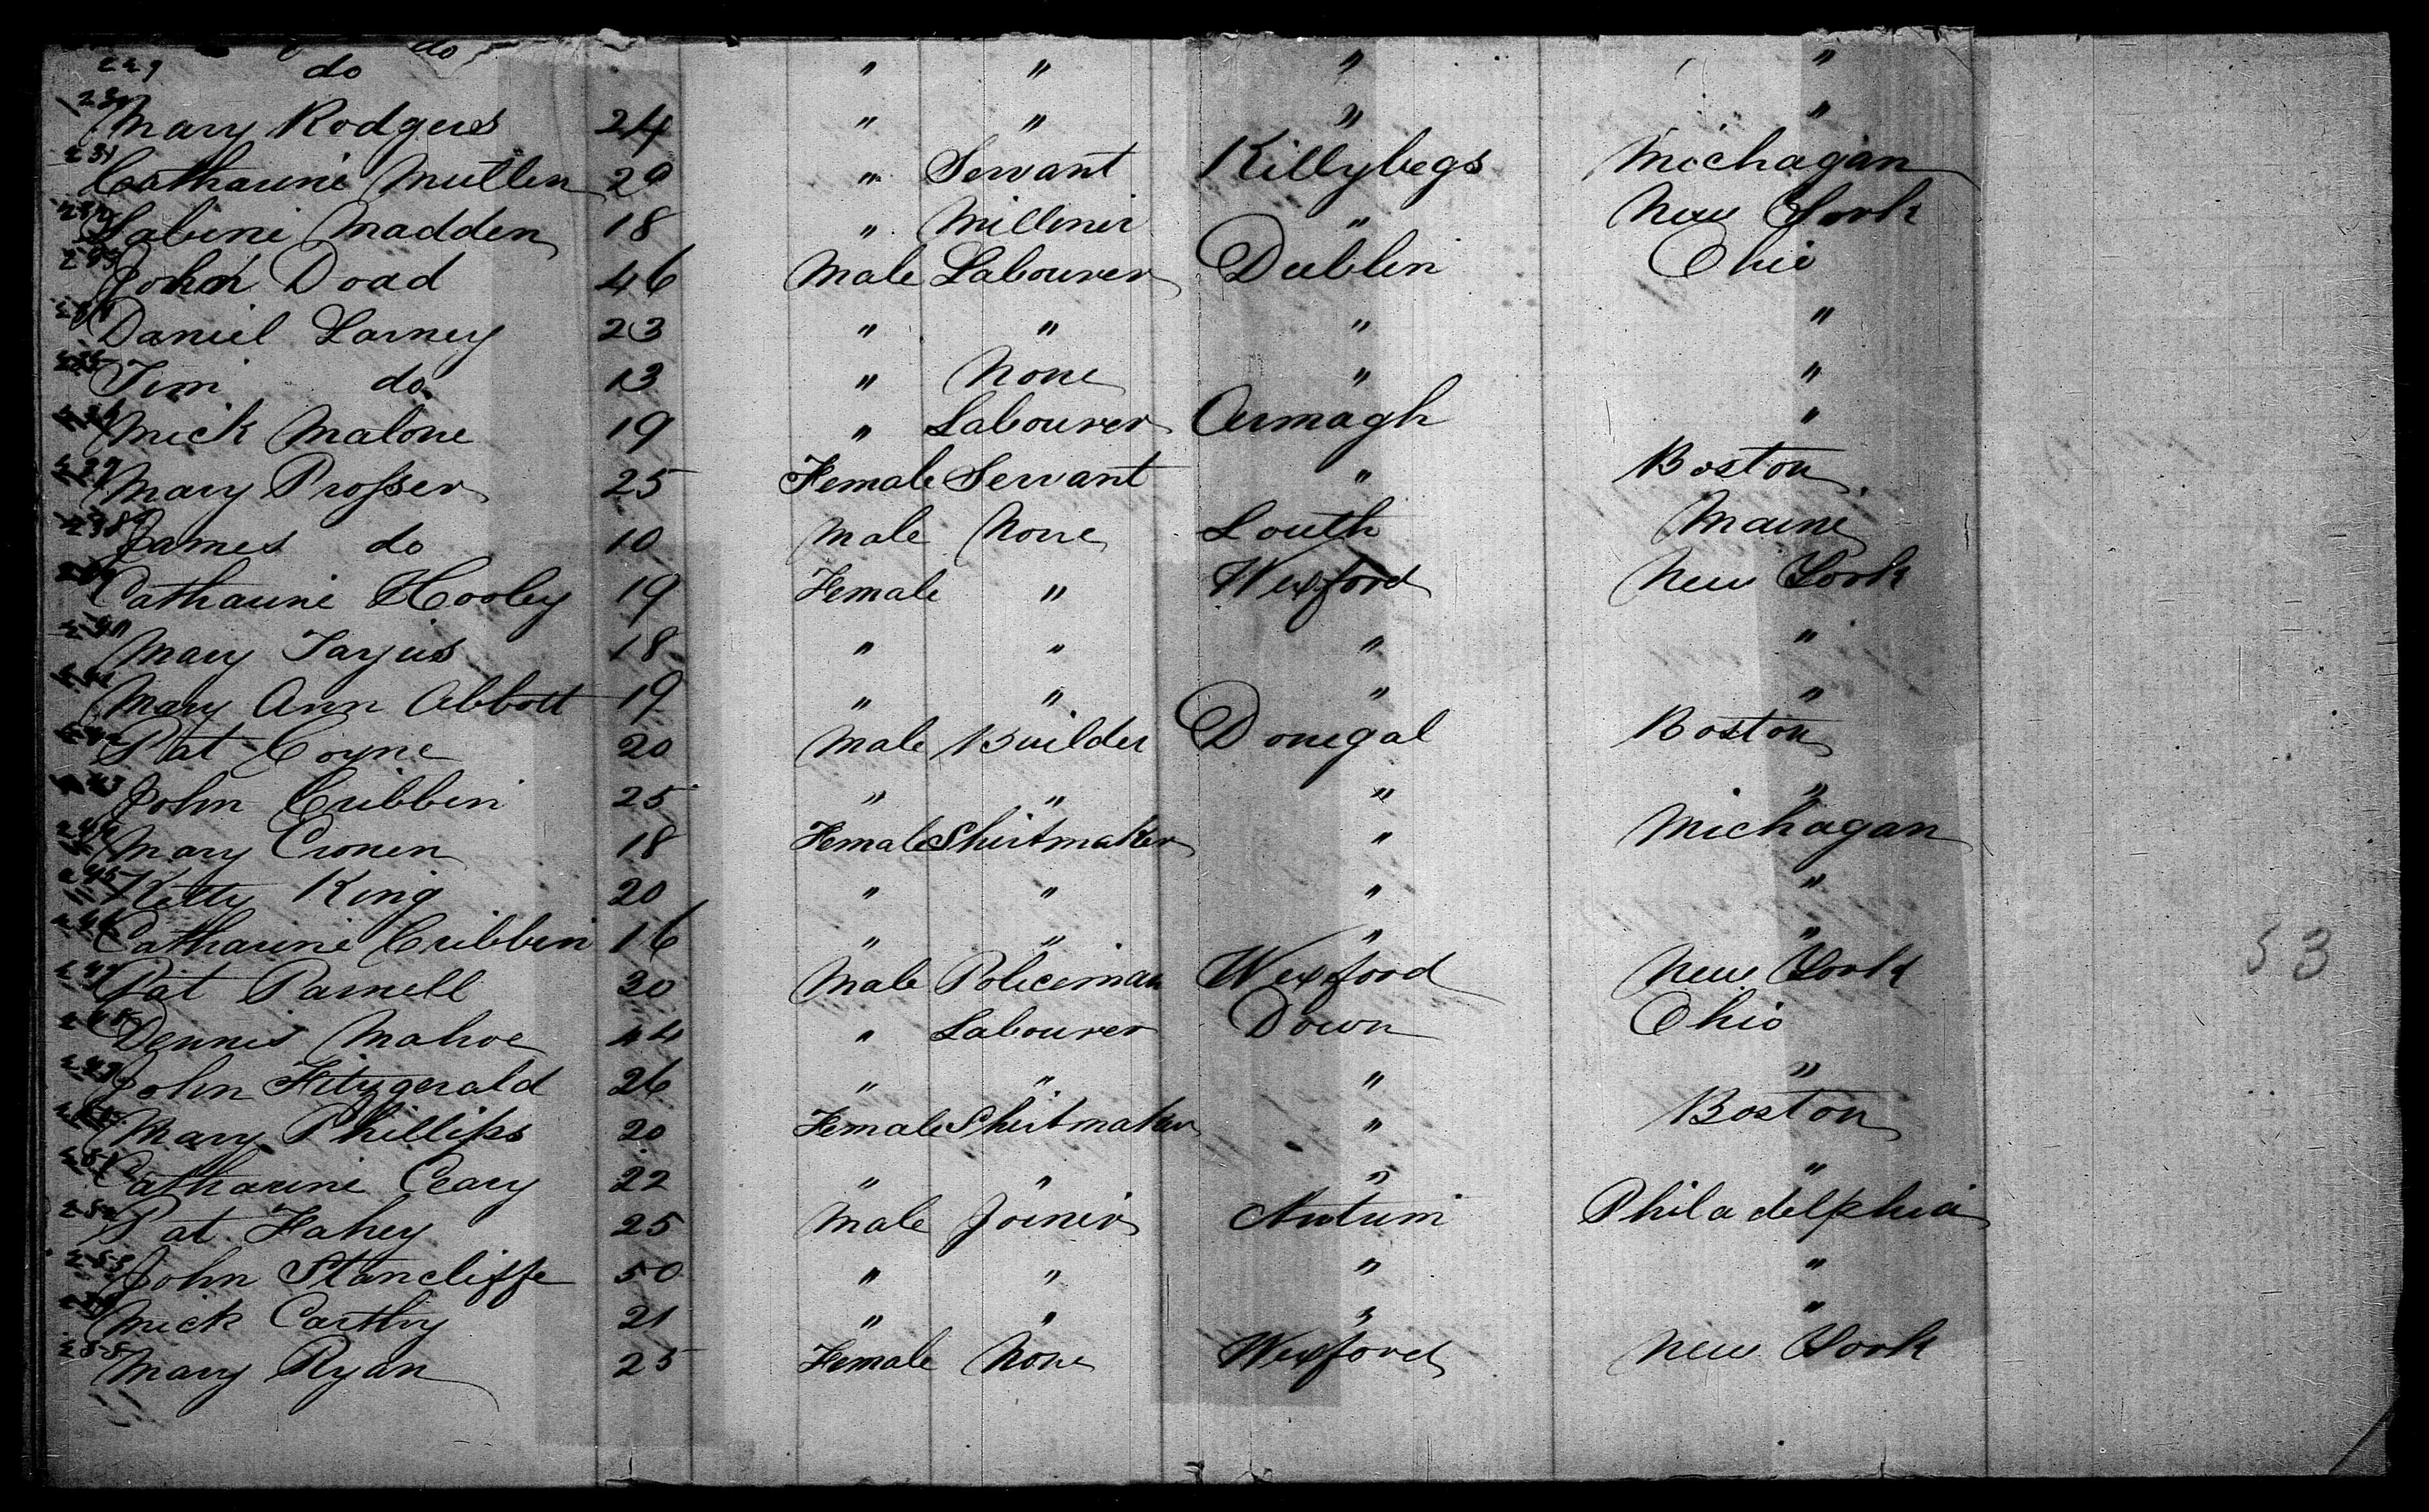 do
229 do " " " "
230 Mary Rodgers 24 " " " "
231 Catharine Mullen 20 " Servant Killybegs Michagan
232 Sabine Madden 18 " Milliner " New York
233 John Doad 46 Male Labourer Dublin Ohio
234 Daniel Larney 23 " " " "
235 Tim do 13 " None " "
236 Mick Malone 19 " Labourer Armagh "
237 Mary Prosser 25 Female Servant " Boston
238 James do 10 Male None Louth Maine
239 Catharine Hooley 19 Female " Wexford New York
240 Mary 18 " " " "
241 Mary Ann Abbott 19 " " " "
242 Pat Coyne 20 Male Builder Donegal Boston
243 John Cribbin 25 " " " "
244 Mary Cronen 18 Female Shirtmaker " Michagan
245 Kitty King 20 " " " "
246 Catharine Cribbin 16 " " " "
247 Pat Parnell 30 Male Policeman Wexford New York
248 Dennis Mahoe 44 " Labourer Down Ohio
249 John Fitzgerald 26 " " " "
250 Mary Phillips 20 Female Shirtmaker " Boston
251 Catharine Ceary 22 " " " "
252 Pat Fahey 25 Male Joiner Antrim Philadelphia
253 John Stancliffe 50 " " " "
254 Mick Carthy 21 " " " "
255 Mary Ryan 25 Female None Wexford New York
53